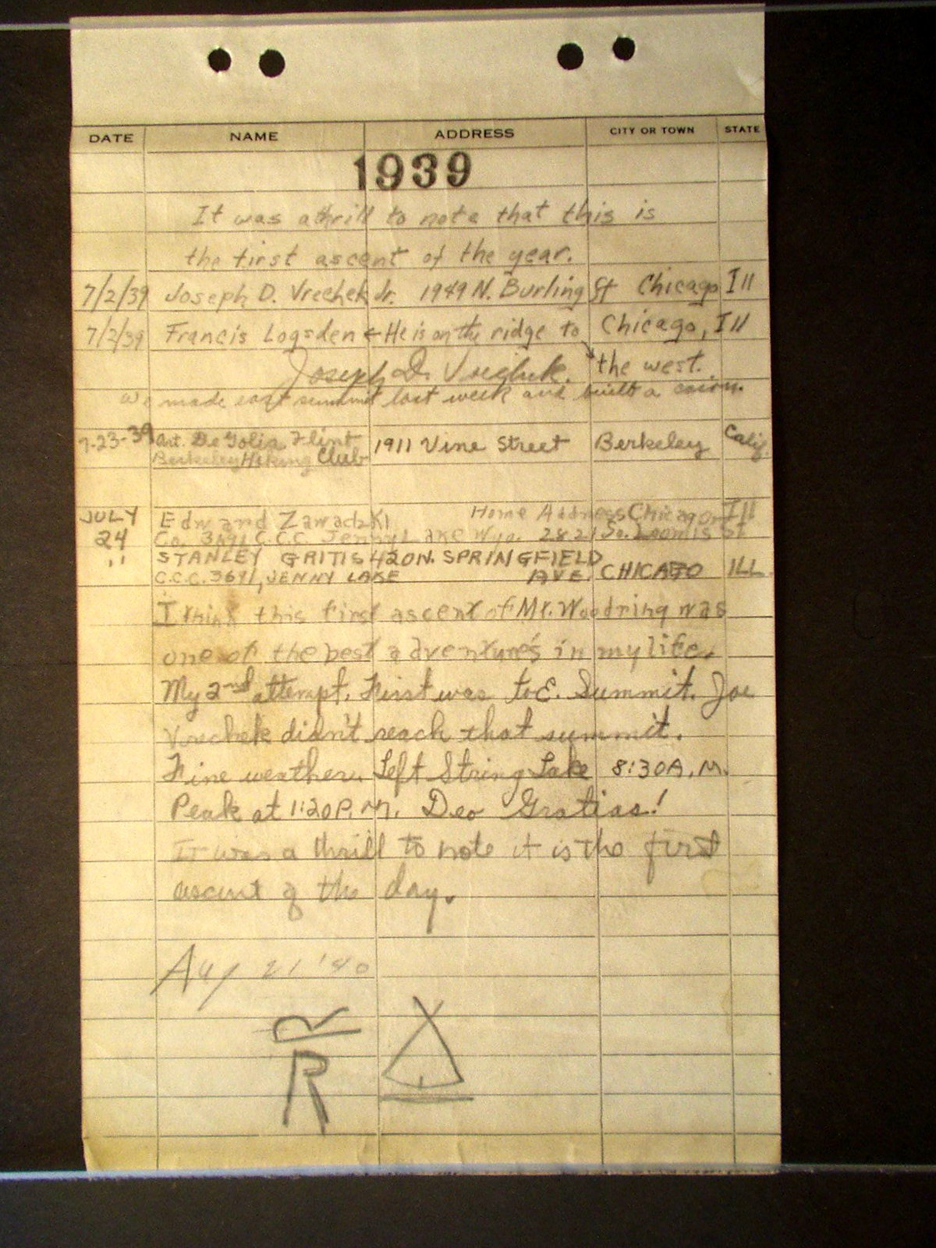 DATE NAME ADDRESS CITY OR TOWN STATE
1939
It was a thrill to note that this is
the first ascent of the year.
7/2/39 Joseph D. Vrechek Jr. 1949 N. Burling St Chicago Ill
7/2/39 Francis Logsden ← He is on the ridge to Chicago, Ill
the west.
Joseph D. Vrechek.
We made east summit last week and built a cairn.
7-23-39 Art. De Golia Flint 1911 Vine Street Berkeley Calif.
Berkeley Hiking Club
JULY Edward Zawadzki Home Address Chicago Ill
24 Co. 3691 C.C.C. Jenny Lake Wyo. 2821 So. Loomis St
" STANLEY GRITIS 420 N. SPRINGFIELD
C.C.C. 3691, JENNY LAKE AVE. CHICAGO ILL.
I think this first ascent of Mt. Woodring was
one of the best adventures in my life.
My 2nd attempt. First was to E. Summit. Joe
Vrechek didn't reach that summit.
Fine weather. Left String Lake 8:30 A.M.
Peak at 1:20 P.M. Deo Gratias!
It was a thrill to note it is the first
ascent of the day.
Aug 21 '40
R
R